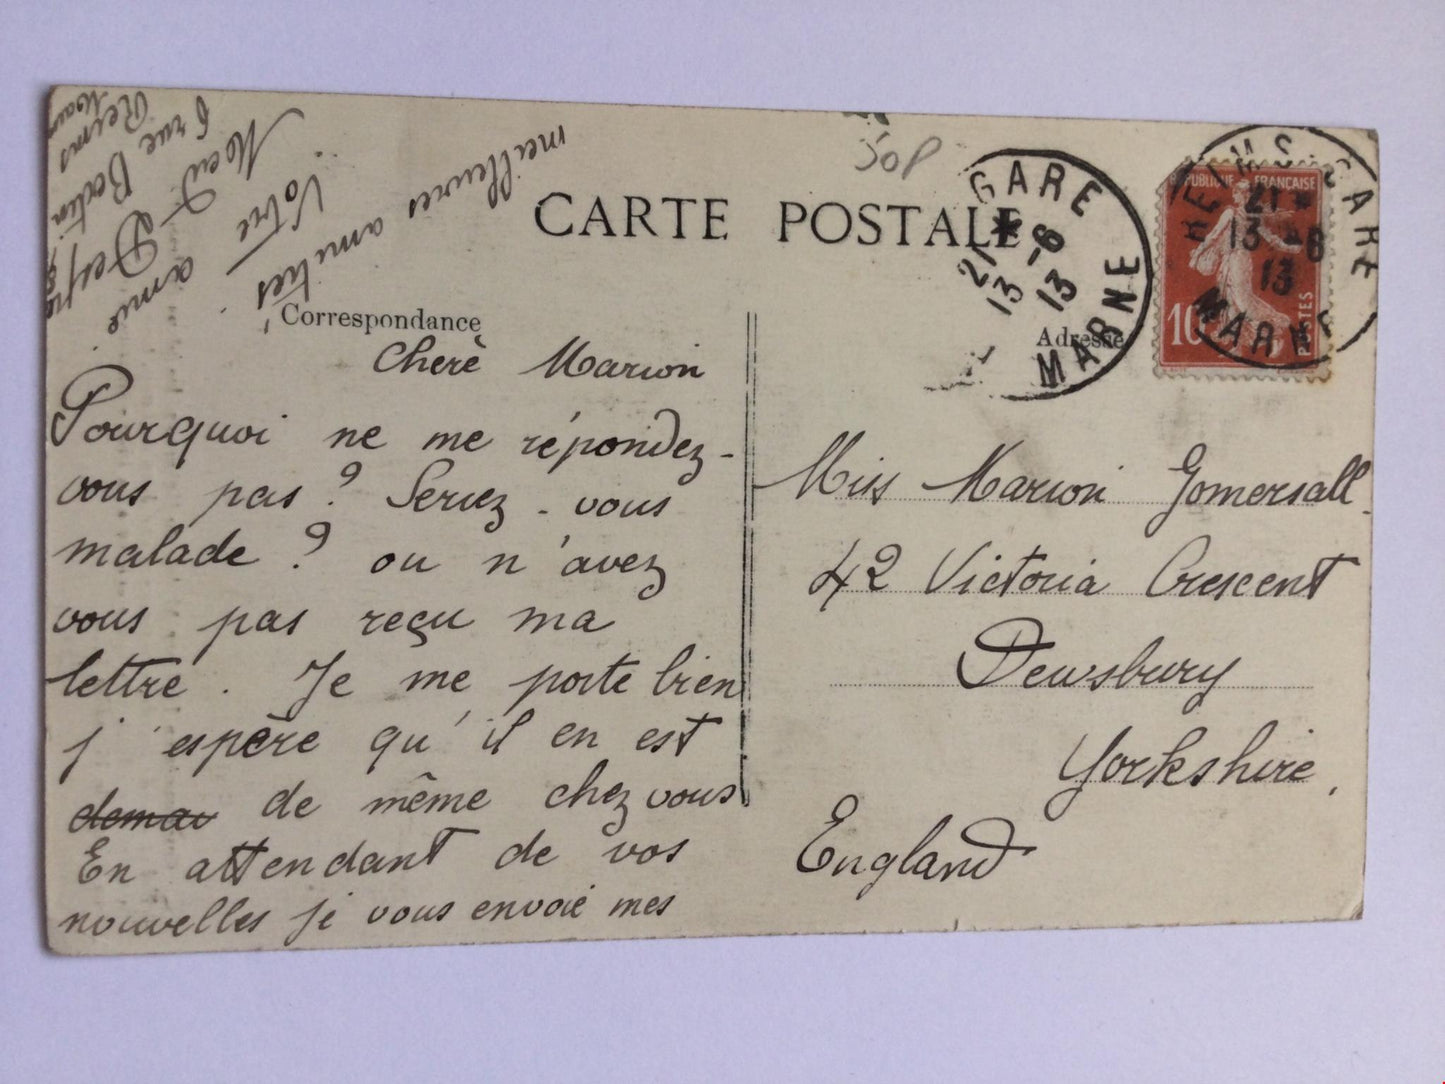 CARTE POSTALE
Correspondance
Adresse
50P
Cherè Marion
Pourquoi ne me répondez-
vous pas ? Seriez-vous
malade ? ou n'avez
vous pas reçu ma
lettre. Je me porte bien
j'espère qu'il en est
de même chez vous
En attendant de vos
nouvelles je vous envoie mes
meilleures amitiés
Votre amie
rue
Reims
Miss Marion Gomersall.
42 Victoria Crescent
Dewsbury
Yorkshire,
England
GARE
21 * 
13 -6
13
MARNE
REIMS GARE
21 *
13 -6
13
MARNE
REPUBLIQUE FRANÇAISE
10
POSTES